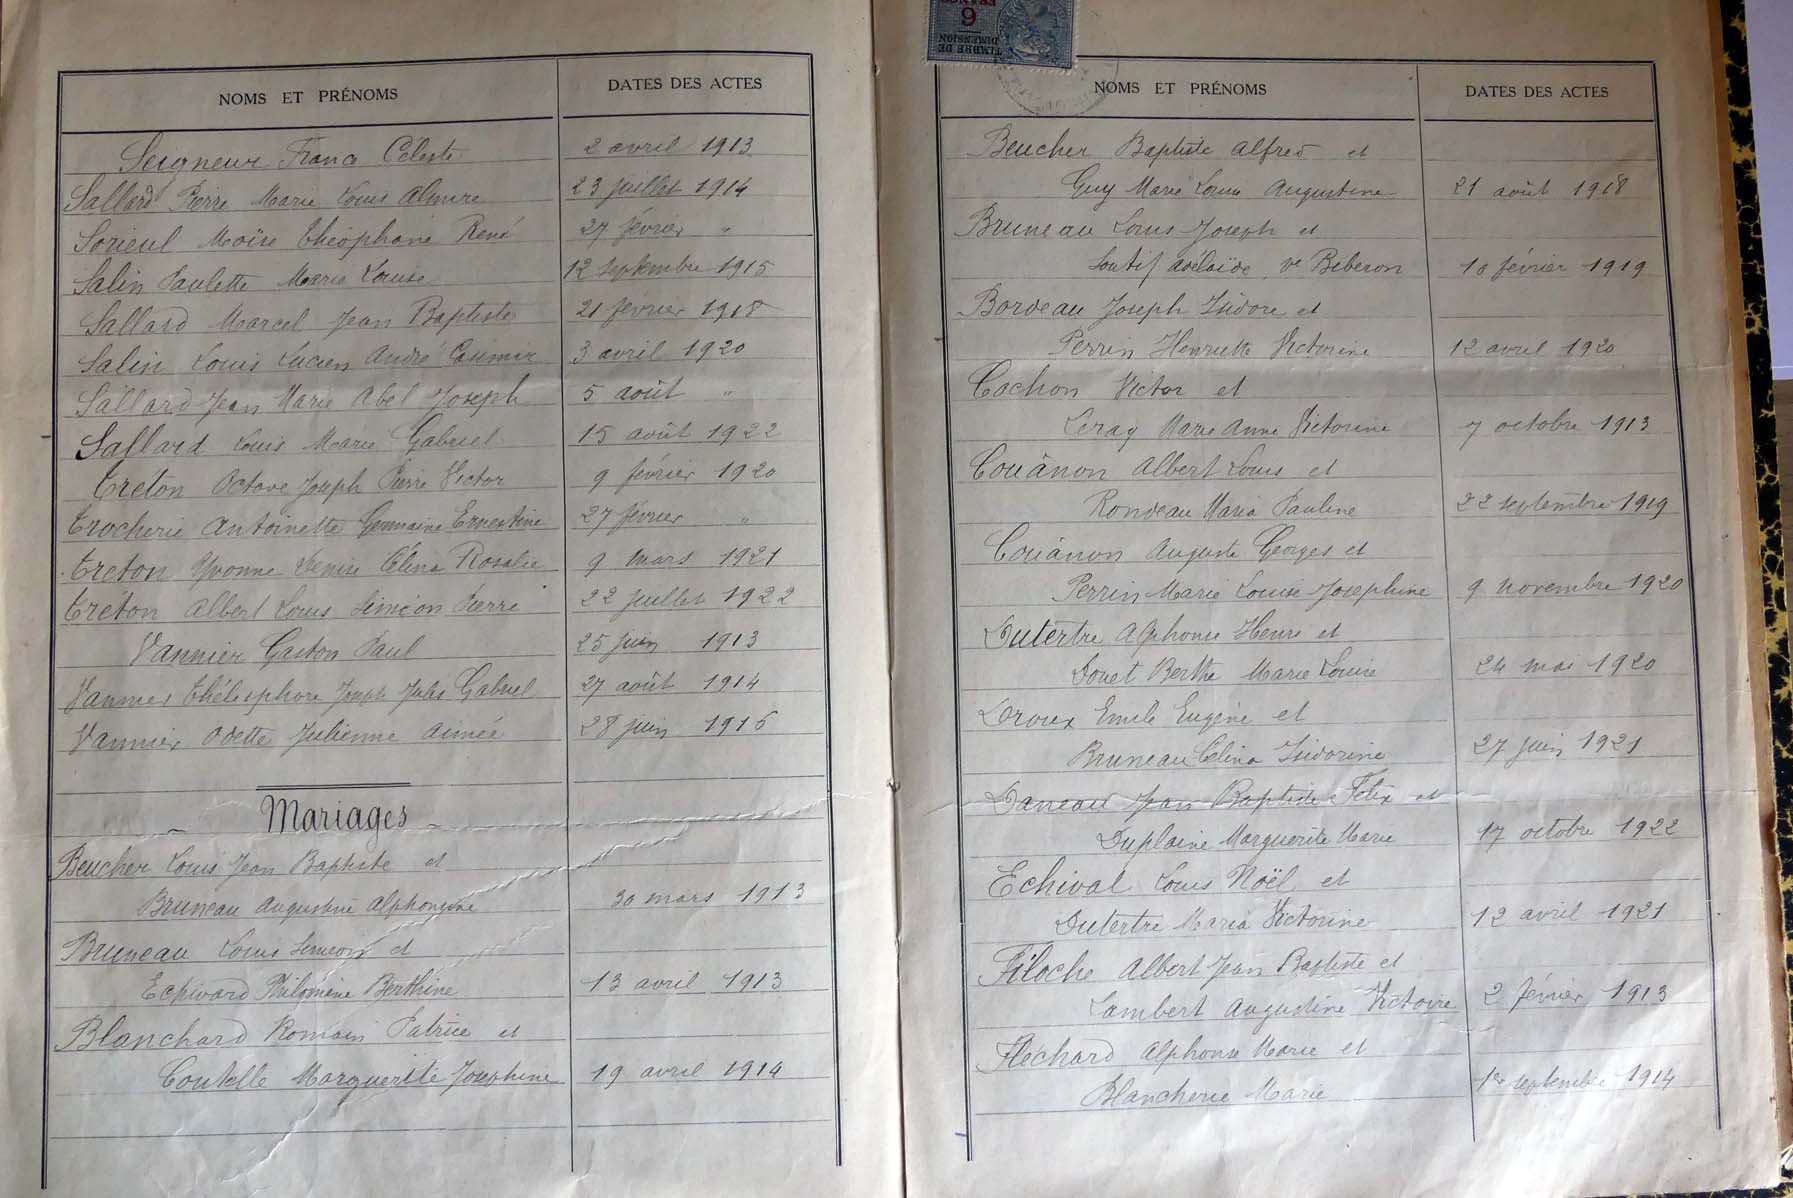 NOMS ET PRÉNOMS DATES DES ACTES
Seigneur Franc Céleste 2 avril 1913
Sallard Pierre Marie Louis Almire 23 juillet 1914
Sorieul Moïse Théophane René 27 février "
Salin Paulette Marie Louise 12 septembre 1915
Sallard Marcel Jean Baptiste 21 février 1918
Salin Louis Lucien André Casimir 3 avril 1920
Sallard Jean Marie Abel Joseph 5 août "
Sallard Louis Marie Gabriel 15 août 1922
Tréton Octave Joseph Pierre Victor 9 février 1920
Trocherie Antoinette Germaine Ernestine 27 février "
Tréton Yvonne Denise Célina Rosalie 9 mars 1921
Tréton Albert Louis Siméon Pierre 22 juillet 1922
Vannier Gaston Paul 25 juin 1913
Vannier Thélesphore Joseph Jules Gabriel 27 août 1914
Vannier Odette Julienne Aimée 28 juin 1916
Mariages
Beucher Louis Jean Baptiste et
Bruneau Augustine Alphonsine 30 mars 1913
Bruneau Louis Simeon et
Echivard Philomène Berthine 13 avril 1913
Blanchard Romain Patrice et
Coutelle Marguerite Joséphine 19 avril 1914
6 FRANCS
TIMBRE DE DIMENSION
NOMS ET PRÉNOMS DATES DES ACTES
Beucher Baptiste Alfred et
Guy Marie Louise Augustine 21 août 1918
Bruneau Louis Joseph et
Loutif Adélaïde Ve Biberon 10 février 1919
Bordeau Joseph Isidore et
Perrin Henriette Victorine 12 avril 1920
Cochon Victor et
Leray Marie Anne Victorine 7 octobre 1913
Couânon Albert Louis et
Rondeau Maria Pauline 22 septembre 1919
Couânon Auguste Georges et
Perrin Marie Louise Joséphine 9 novembre 1920
Dutertre Alphonse Henri et
Douet Berthe Marie Louise 24 mai 1920
Droux Emile Eugène et
Bruneau Célina Isidorine 27 juin 1921
Daneau Jean Baptiste Félix et
Duplaine Marguerite Marie 17 octobre 1922
Echivat Louis Noël et
Dutertre Maria Victorine 12 avril 1921
Filoche Albert Jean Baptiste et
Lambert Augustine Victoire 2 février 1913
Fléchard Alphonse Marie et
Blancherie Marie 1er septembre 1914